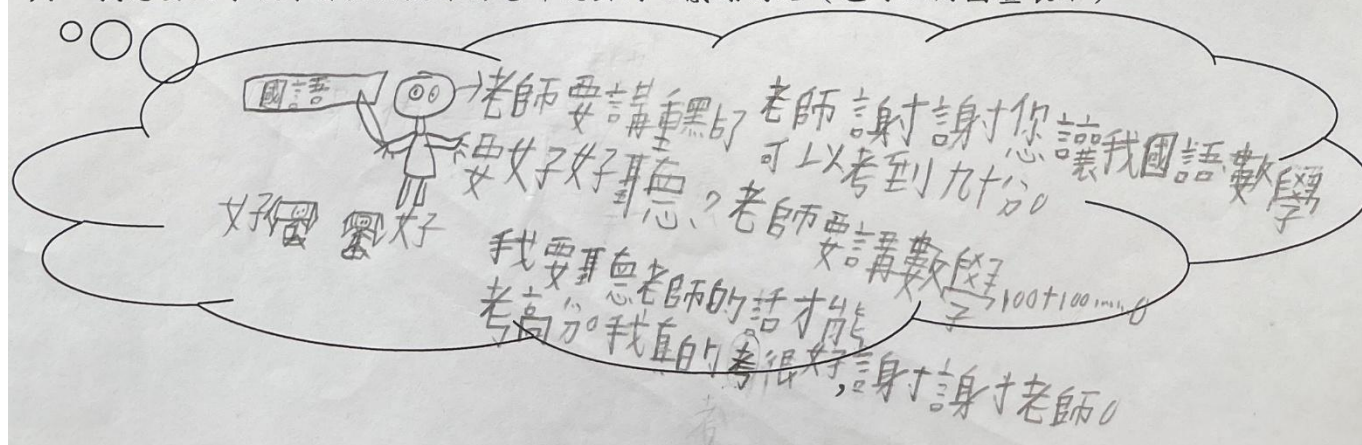 國語
老師要講重點了
要好好聽?
好 好
老師謝謝您讓我國語數學
可以考到九十分。
老師要講數學100+100......。
我要聽老師的話才能
考高分。我真的考很好,謝謝老師。